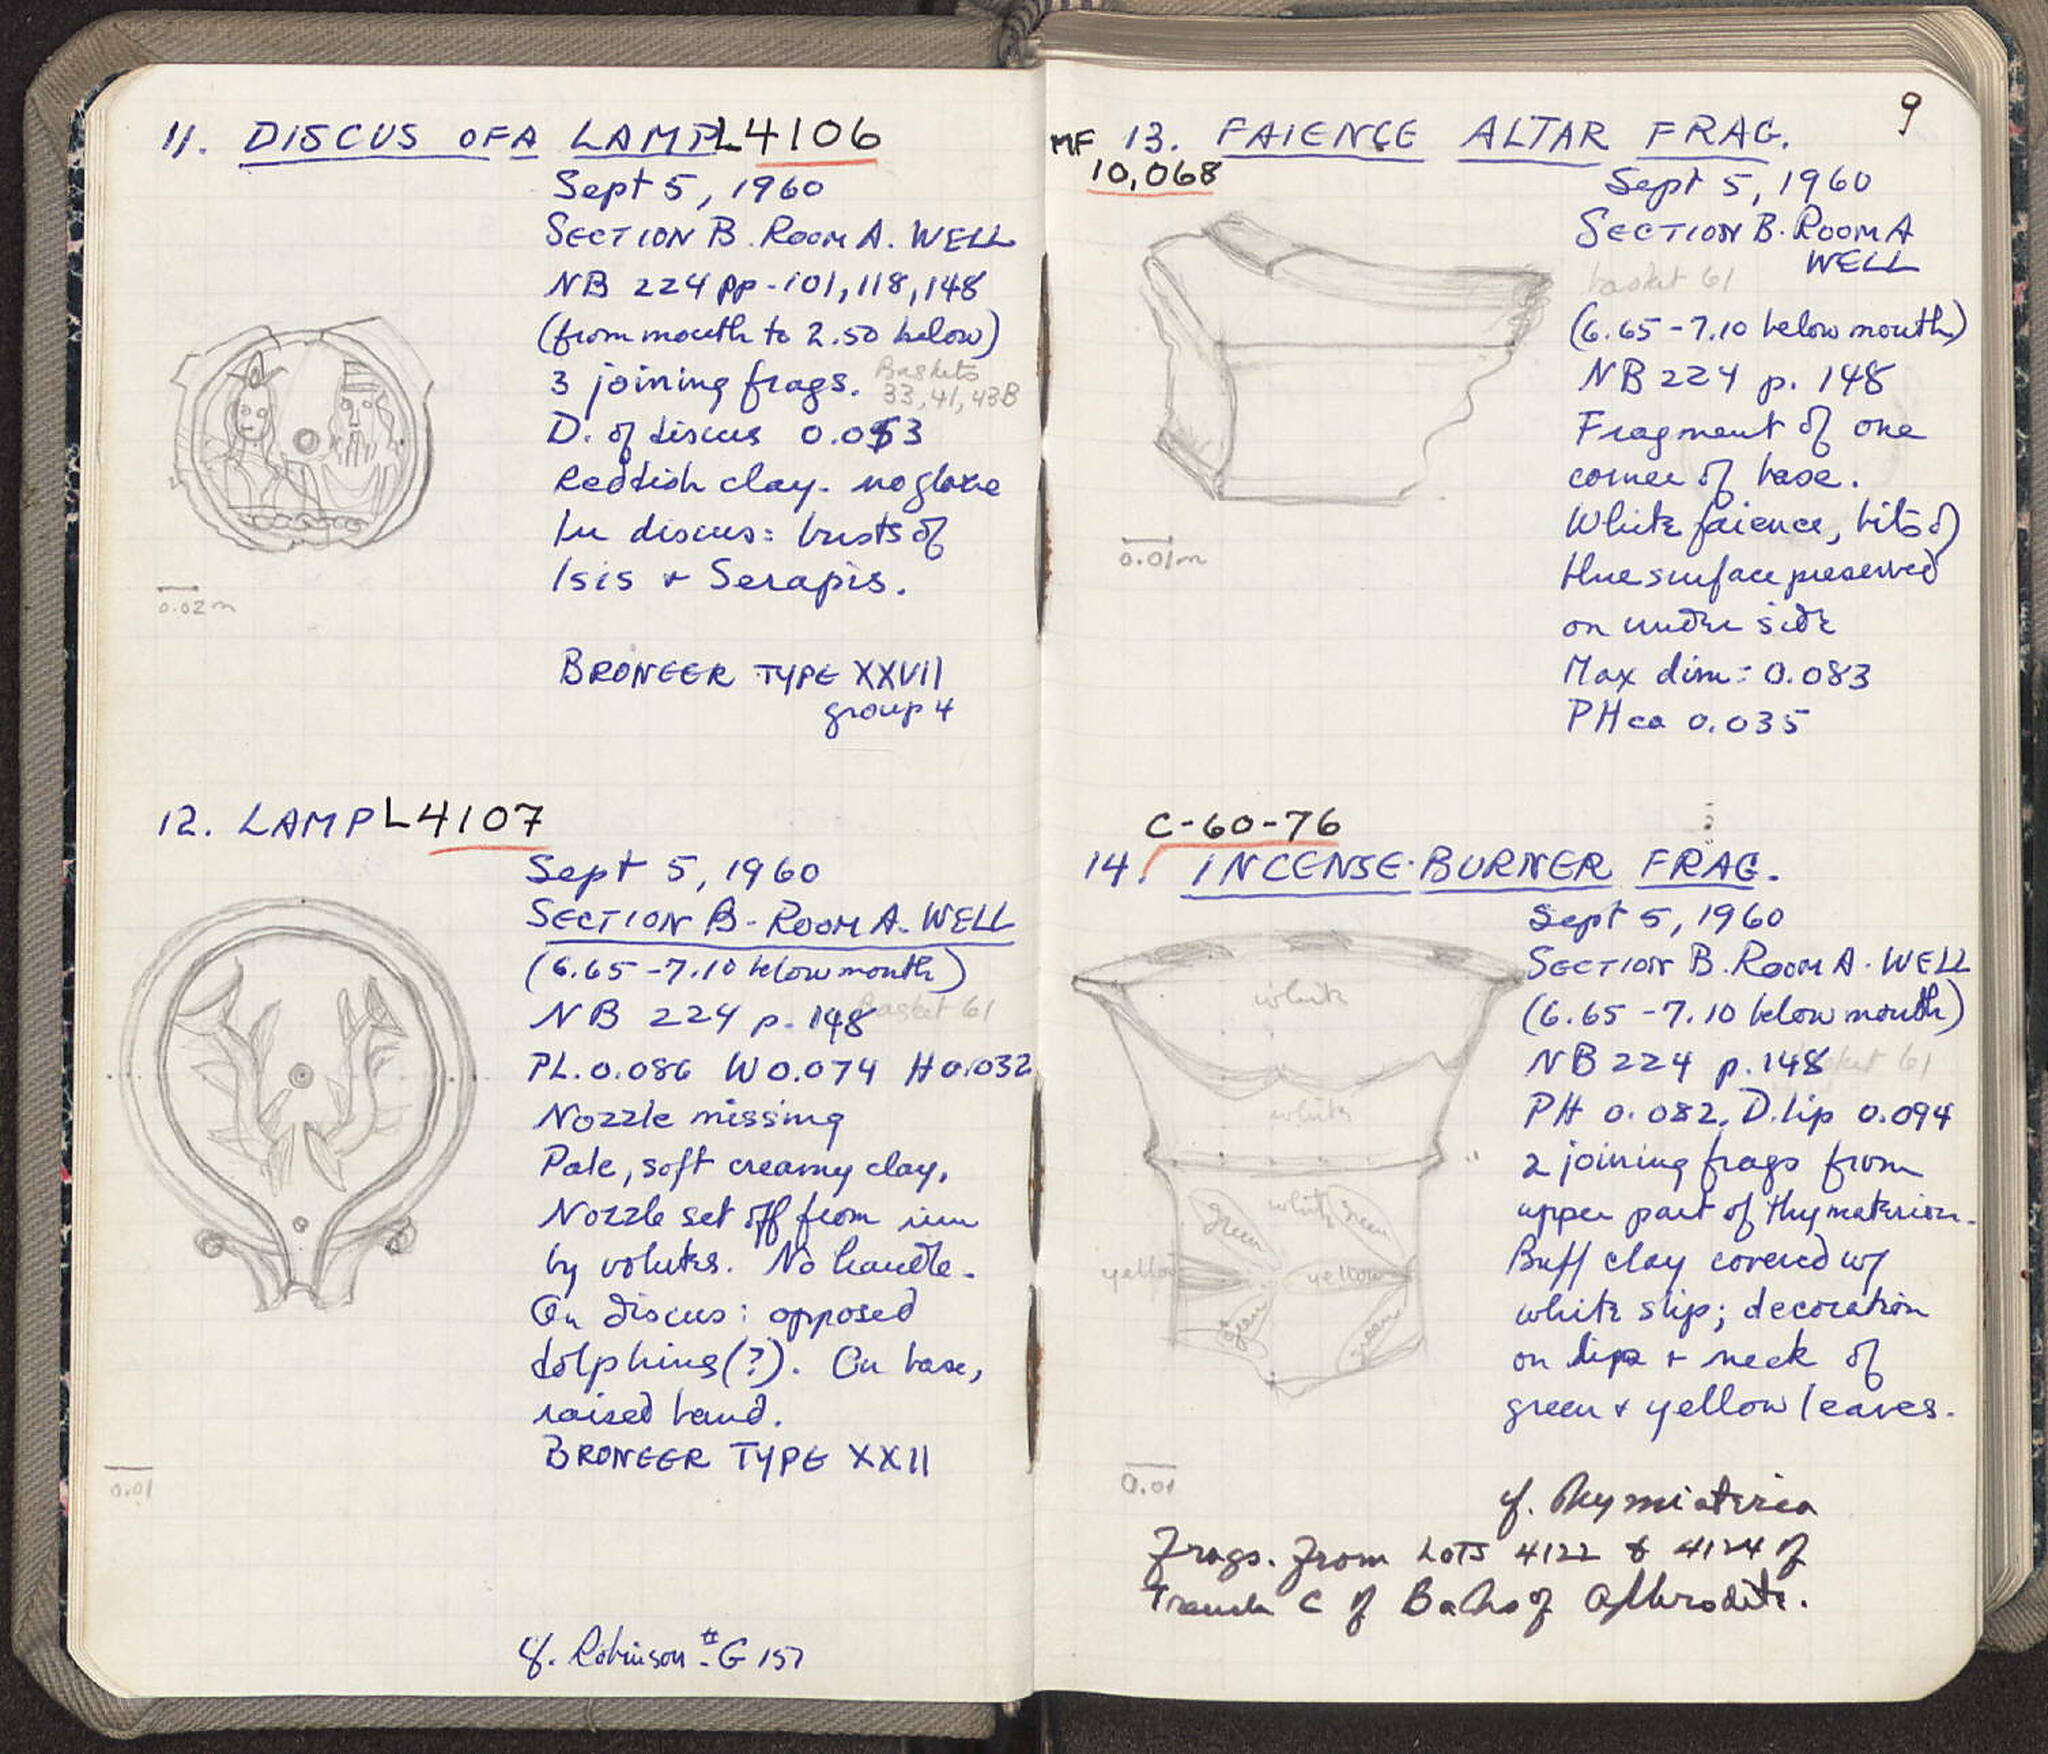 11. DISCUS OF A LAMP L4106
Sept 5, 1960
SECTION B. ROOM A. WELL
NB 224 pp. 101, 118, 148
(from mouth to 2.50 below)
3 joining frags. Baskets
33, 41, 43B
D. of discus 0.053
Reddish clay. no glaze
In discus: busts of
Isis + Serapis.
BRONEER TYPE XXVII
group 4
0.02m
12. LAMP L4107
Sept 5, 1960
SECTION B. ROOM A. WELL
(6.65 - 7.10 below mouth)
NB 224 p. 148 Basket 61
PL. 0.086 W 0.074 H 0.032
Nozzle missing
Pale, soft creamy clay,
Nozzle set off from rim
by volutes. No handle.
On discus: opposed
dolphins(?). On base,
raised band.
BRONEER TYPE XXII
0.01
cf. Robinson # G 157
9
MF 13. FAIENCE ALTAR FRAG.
10,068
Sept 5, 1960
SECTION B. ROOM A
WELL
basket 61
(6.65 - 7.10 below mouth)
NB 224 p. 148
Fragment of one
corner of base.
White faience, bits of
blue surface preserved
on under side
Max dim: 0.083
PH ca 0.035
0.01m
C-60-76
14. INCENSE-BURNER FRAG.
Sept 5, 1960
SECTION B. ROOM A. WELL
(6.65 - 7.10 below mouth)
NB 224 p. 148 basket 61
PH 0.082, D. lip 0.094
2 joining frags from
upper part of thymaterion.
Buff clay covered w/
white slip; decoration
on lip + neck of
green + yellow leaves.
white
white
green white green
yellow yellow
green green
0.01
cf. Thymiateria
Frags. from LOTS 4122 & 4124 of
Trench C of Baths of Aphrodite.